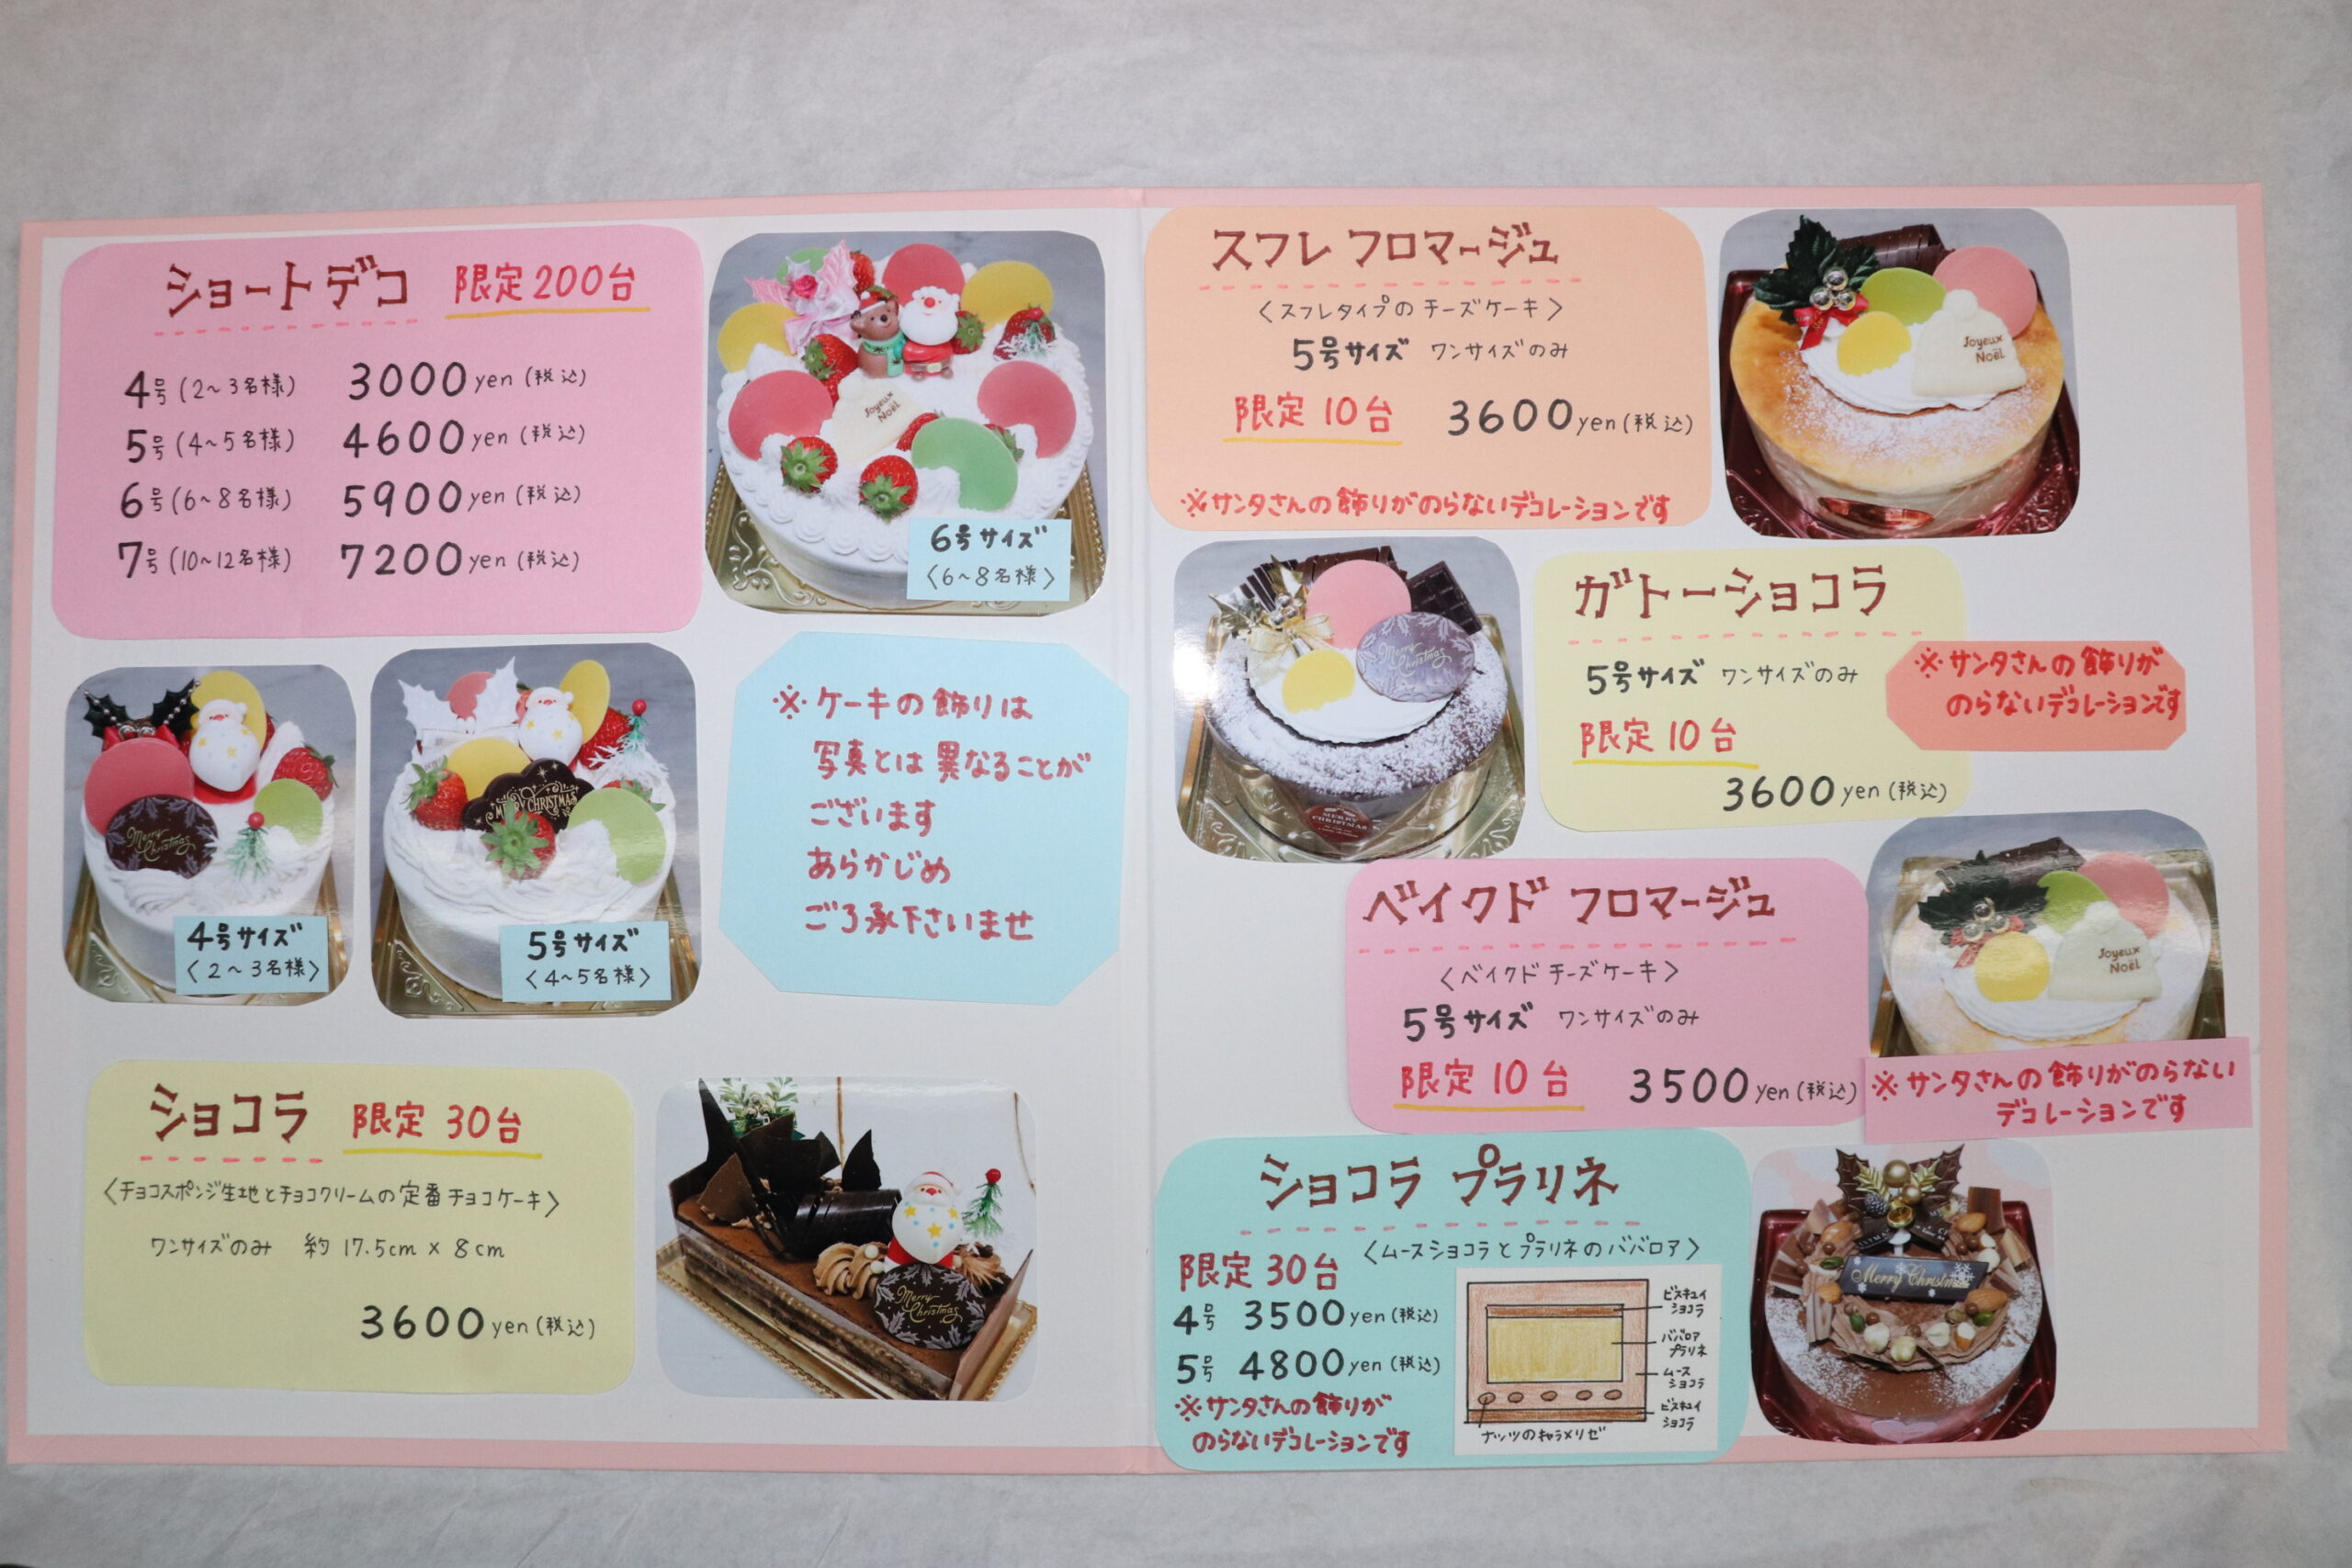 ショートデコ 限定200台
4号(2~3名様) 3000yen(税込)
5号(4~5名様) 4600yen(税込)
6号(6~8名様) 5900yen(税込)
7号(10~12名様) 7200yen(税込)
Joyeux
Noël
6号サイズ
〈6~8名様〉
Merry
Christmas
4号サイズ
〈2~3名様〉
MERRY CHRISTMAS
5号サイズ
〈4~5名様〉
※ケーキの飾りは
写真とは異なることが
ございます
あらかじめ
ご了承下さいませ
ショコラ 限定30台
〈チョコスポンジ生地とチョコクリームの定番チョコケーキ〉
ワンサイズのみ 約17.5cm×8cm
3600yen(税込)
Merry
Christmas
スフレ フロマージュ
〈スフレタイプのチーズケーキ〉
5号サイズ ワンサイズのみ
限定10台 3600yen(税込)
※サンタさんの飾りがのらないデコレーションです
Joyeux
Noël
Merry
Christmas
MERRY
CHRISTMAS
ガトーショコラ
5号サイズ ワンサイズのみ
限定10台
3600yen(税込)
※サンタさんの飾りが
のらないデコレーションです
ベイクド フロマージュ
〈ベイクドチーズケーキ〉
5号サイズ ワンサイズのみ
限定10台 3500yen(税込)
Joyeux
Noël
※サンタさんの飾りがのらない
デコレーションです
ショコラ プラリネ
限定30台 〈ムースショコラとプラリネのババロア〉
4号 3500yen(税込)
5号 4800yen(税込)
※サンタさんの飾りが
のらないデコレーションです
ビスキュイ
ショコラ
ババロア
プラリネ
ムース
ショコラ
ビスキュイ
ショコラ
ナッツのキャラメリゼ
Merry Christmas